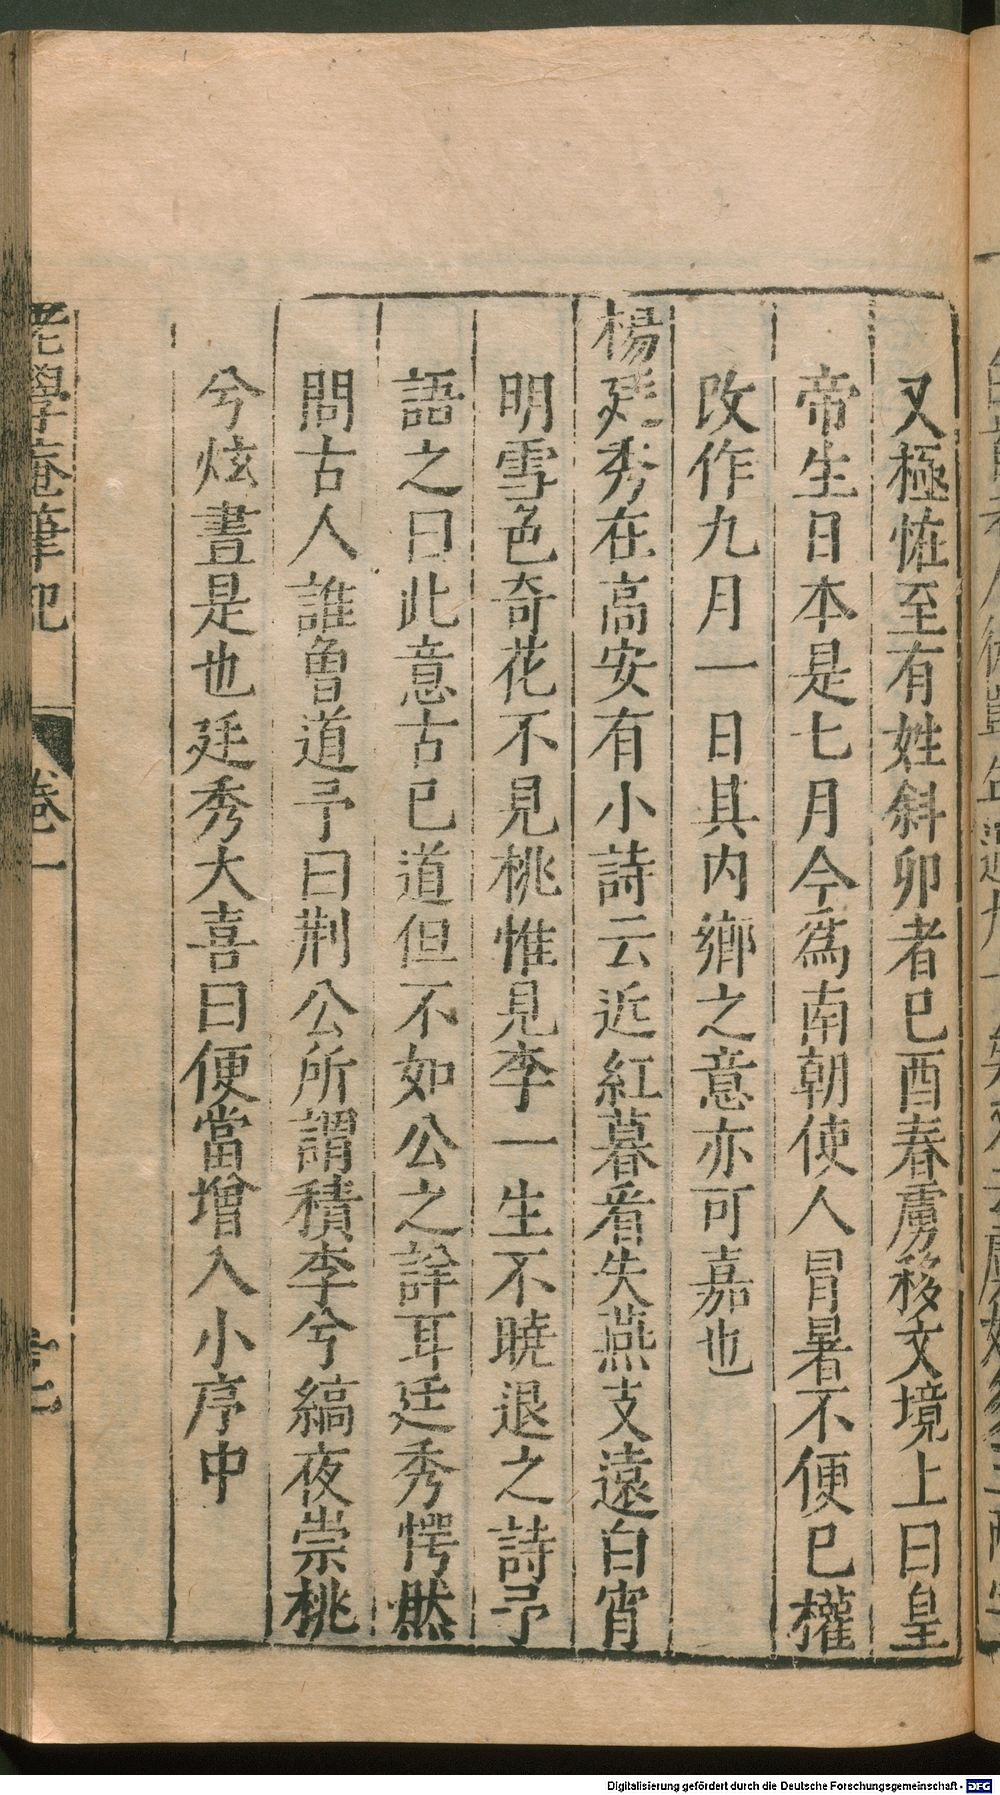 又極恠至有姓斜卯者巳酉春虜移文境上曰皇
帝生日本是七月今爲南朝使人冒暑不便巳權
改作九月一日其内鄉之意亦可嘉也
楊廷秀在高安有小詩云近紅暮看失燕支遠白宵
明雪色奇花不見桃惟見李一生不曉退之詩予
語之曰此意古已道但不如公之詳耳廷秀愕然
問古人誰曾道予曰荆公所謂積李兮縞夜崇桃
兮炫晝是也廷秀大喜曰便當增入小序中
老學庵筆記
卷一
Digitalisierung gefördert durch die Deutsche Forschungsgemeinschaft - DFG